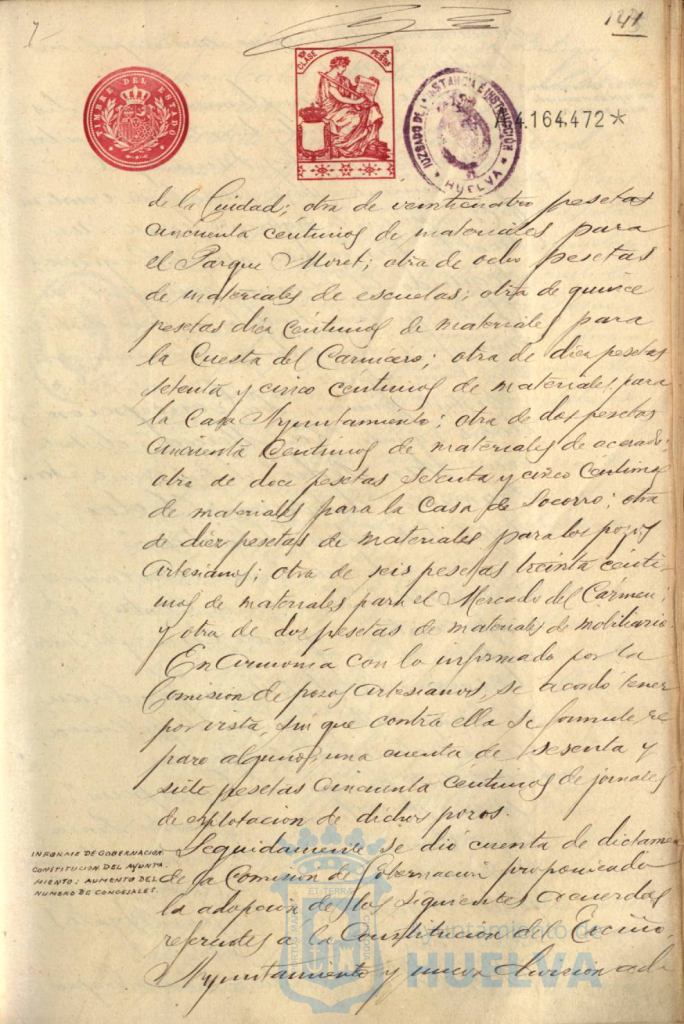 141
TIMBRE DEL ESTADO
1ª CLASE
2 PESETAS
JUZGADO DE 1ª INSTANCIA E INSTRUCCION
HUELVA
A4.164.472*
de la Ciudad; otra de veinticuatro pesetas
cincuenta céntimos de materiales para
el Parque Moret; otra de ocho pesetas
de materiales de escuelas; otra de quince
pesetas diez céntimos de materiales para
la Cuesta del Carnicero; otra de diez pesetas
setenta y cinco centimos de materiales para
la Casa Ayuntamiento; otra de dos pesetas
cincuenta céntimos de materiales de acerado;
otra de doce pesetas setenta y cinco céntimos
de materiales para la Casa de Socorro; otra
de diez pesetas de materiales para los pozos
Artesianos; otra de seis pesetas treinta cénti-
mos de materiales para el Mercado del Cármen;
y otra de dos pesetas de materiales de mobiliario.
En armonía con lo informado por la
Comision de pozos Artesianos, se acordó tener
por vista, sin que contra ella se formule re
paro alguno, una cuenta de sesenta y
siete pesetas cincuenta céntimos de jornales
de esplotacion de dichos pozos.
INFORME DE GOBERNACION
CONSTITUCION DEL AYUNTA.
MIENTO: AUMENTO DEL
NUMERO DE CONCEJALES.
Seguidamente se dió cuenta de dictamen
de la Comisión de Gobernación proponiendo
la adopción de los siguientes acuerdos
referentes a la Constitución del Excmo.
Ayuntamiento y nueva division
Ayuntamiento de
HUELVA